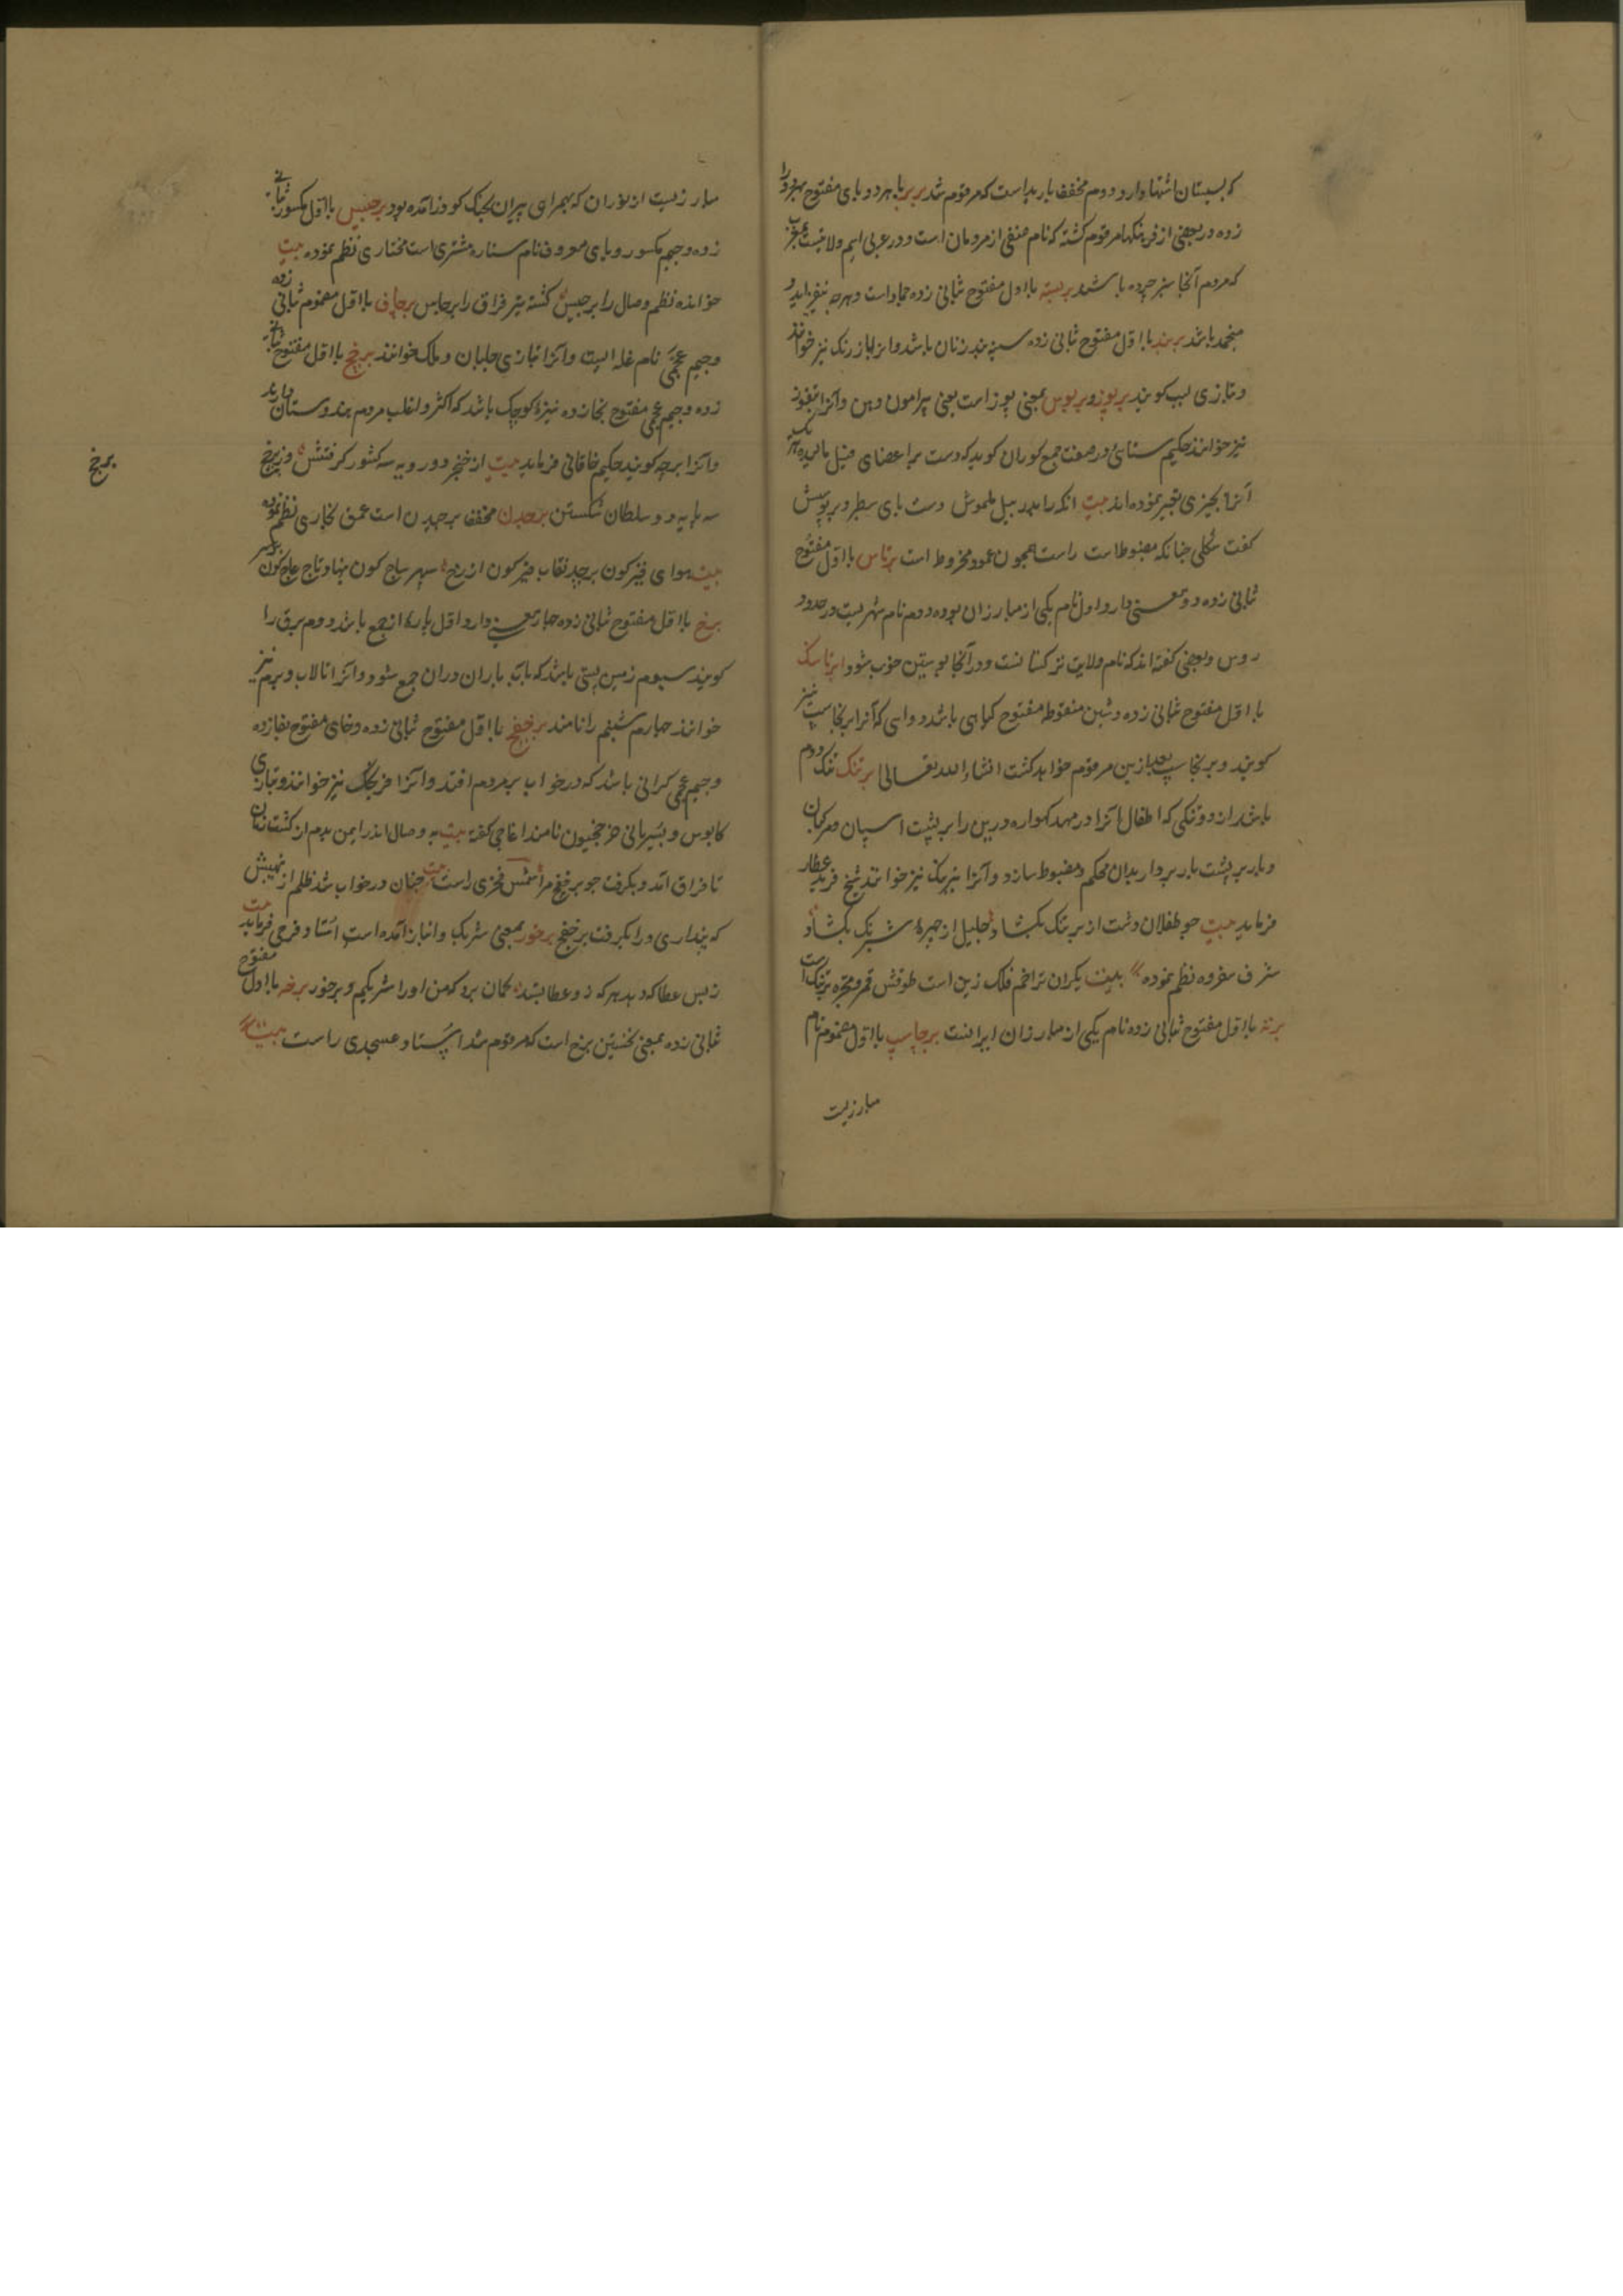 که بسیستان اشتها دارد و دوم مخفف باربد است که مرقوم شد بربر با هر دو بای مفتوح
زده در بعضی از فرهنگها مرقوم گشته که نام صنفی از مردمان است و در عربی اسم ولایتیست
که مردم آنجا سبز چرده باشند بربسته با اول مفتوح ثانی زده جماد است و هر چه نیفزاید و
منجمد باشد بربند با اول مفتوح ثانی زده سینه بند زنان باشد و نیز خوانند
و بتازی لبب گویند برپوز و برپوس بمعنی پوز است یعنی پیرامون دهن و آنرا بتفوز
نیز خوانند حکیم سنائی در صفت جمع کوران گوید که دست بر اعضای فیل مالیده
آنرا بچیزی تعبیر نموده اند بیت انکه را بد ز پیل ملموسش دست و پای سطبر و پر بوسش
گفت شکلی چنانکه مضبوط است راست همچون عمود مخروط است برتاس با اول مفتوح
ثانی زده دو معنی دارد اول نام یکی از مبارزان بوده دوم نام شهریست در حدود
روس و بعضی گفته اند که نام ولایت ترکستانست و در آنجا پوستین خوب شود برتاشک
با اول مفتوح ثانی زده و شین منقوطه مفتوح گیاهی باشد دوایی که آنرا برنجاسپ نیز
گویند و برنجاسپ بعد ازین مرقوم خواهد گشت انشاء الله تعالی برتنگ تنگ دوم
باشد از دو تنگی که اطفال را در مهد گهواره و زین را بر پشت اسپان
و بار بر پشت باربردار بدان محکم و مضبوط سازد و آنرا نیز خوانند شیخ فرید عطار
فرماید بیت چو طفلان دست از برتنگ بگشاد جلیل از چهرۀ شبرنگ بگشاد
شرف سفروه نظم نموده بیت یکران ترا خم فلک زین است طوقش قمر و مجره برتنگ است
برته با اول مفتوح ثانی زده نام یکی از مبارزان ایرانست برجاسپ با اول مضموم نام
مبارزیست
مبارزیست از توران که بهمراهی پیران بجنگ گودرز آمده بود برجیس با اول مکسور ثانی
زده و جیم مکسور و یای معروف نام ستاره مشتری است مختاری نظم نموده بیت
خوانده نظم وصال را برجیس گشته تیر فراق را برجاس برچاف با اول مضموم ثانی زده
و جیم عجمی نام غله ایست و آنرا بتازی جلبان و ملک خوانند برچخ با اول مفتوح ثانی
زده و جیم عجمی مفتوح بخا زده نیزۀ کوچک باشد که اکثر و اغلب مردم هندوستان دارند
و آنرا برچه گویند حکیم خاقانی فرماید بیت از خنجر دو رویه سه کشور گرفتنش وز برچخ
برخ
سه پایه دو سلطان شکستن برچدن مخفف برچیدن است عمعق بخاری نظم نموده
بیت هوای قیرگون برچد نقاب قیرگون از رخ سپهر ساج گون بنهاد تاج عاج گون بر سر
برخ با اول مفتوح ثانی زده چهار معنی دارد اول پاره از جمع باشد دوم برق را
گویند سیوم زمین پستی باشد که آب باران دران جمع شود و آنرا تالاب و برم نیز
خوانند چهارم شبنم را نامند برخفج با اول مفتوح ثانی زده و خای مفتوح بفا زده
و جیم عجمی گرانی باشد که در خواب بر مردم افتد و آنرا فرنجک نیز خوانند و بتازی
کابوس و بسریانی نامند اغاجی گفته بیت به وصال اندر ایمن بدم از گشت زمان
تا فراق آمد و بگرفت چو برخفج مرا شمس فخری راست بیت چنان در خواب شد ظلم از نهیبش
که پنداری ورا بگرفت برخفج برخور بمعنی شریک و انباز آمده است استاد فرخی فرماید بیت
ز بس عطا که دهد هر که زو عطا بستد گمان برد که من او را شریکم و برخور برخه با اول مفتوح
ثانی زده بمعنی نخستین برخ است که مرقوم شد استاد عسجدی راست بیت